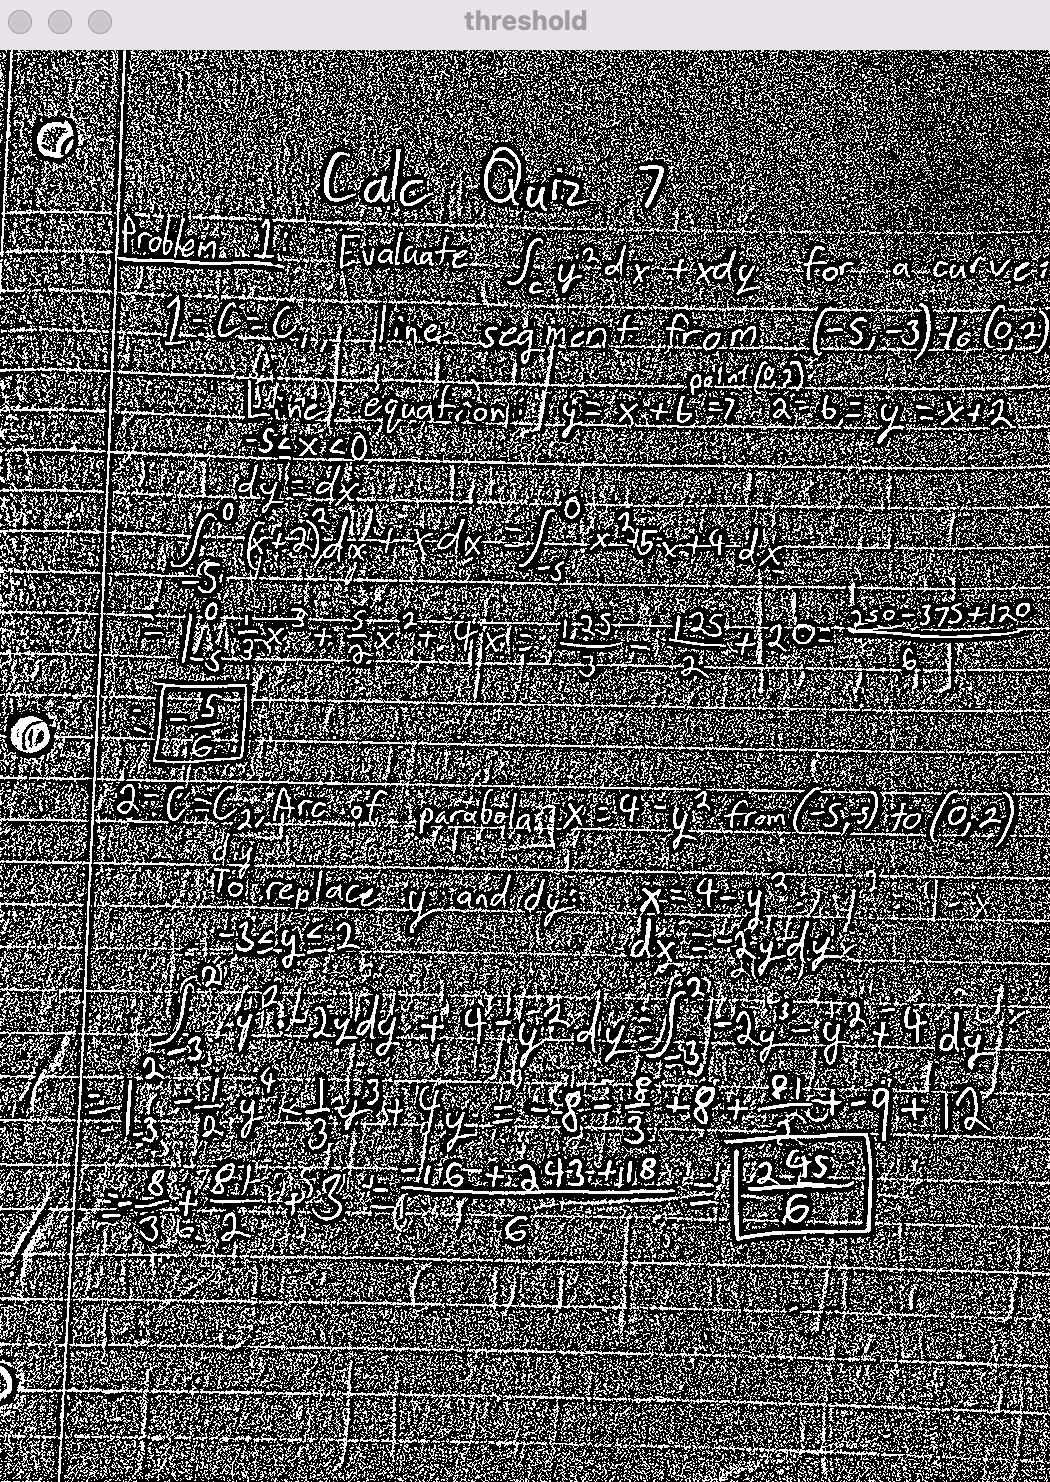 threshold
Calc Quiz 7
Problem 1: Evaluate ∫_C y²dx + xdy for a curve:
1 = C = C₁, line segment from (-5,-3) to (0,2)
point (0,2)
Line equation: y = x + b ⇒ 2 = b = y = x + 2
-5 ≤ x ≤ 0
dy = dx
∫_{-5}^{0} (x+2)² dx + x dx = ∫_{-5}^{0} x² 5x + 4 dx
= |_{-5}^{0} 1/3 x³ + 5/2 x² + 4x = 125/3 - 125/2 + 20 = (250 - 375 + 120)/6
= -5/6
2 = C = C₂, Arc of parabola x = 4 - y² from (-5,-3) to (0,2)
To replace y and dy: x = 4 - y²
-3 ≤ y ≤ 2 dx = -2y dy
∫_{-3}^{2} y² · -2y dy + 4 - y² dy = ∫_{-3}^{2} -2y³ - y² + 4 dy
= |_{-3}^{2} -1/2 y⁴ - 1/3 y³ + 4y = -8 - 8/3 + 8 + 81/2 + -9 + 12
= -8/3 + 81/2 + 3 = (-16 + 243 + 18)/6 = 245/6